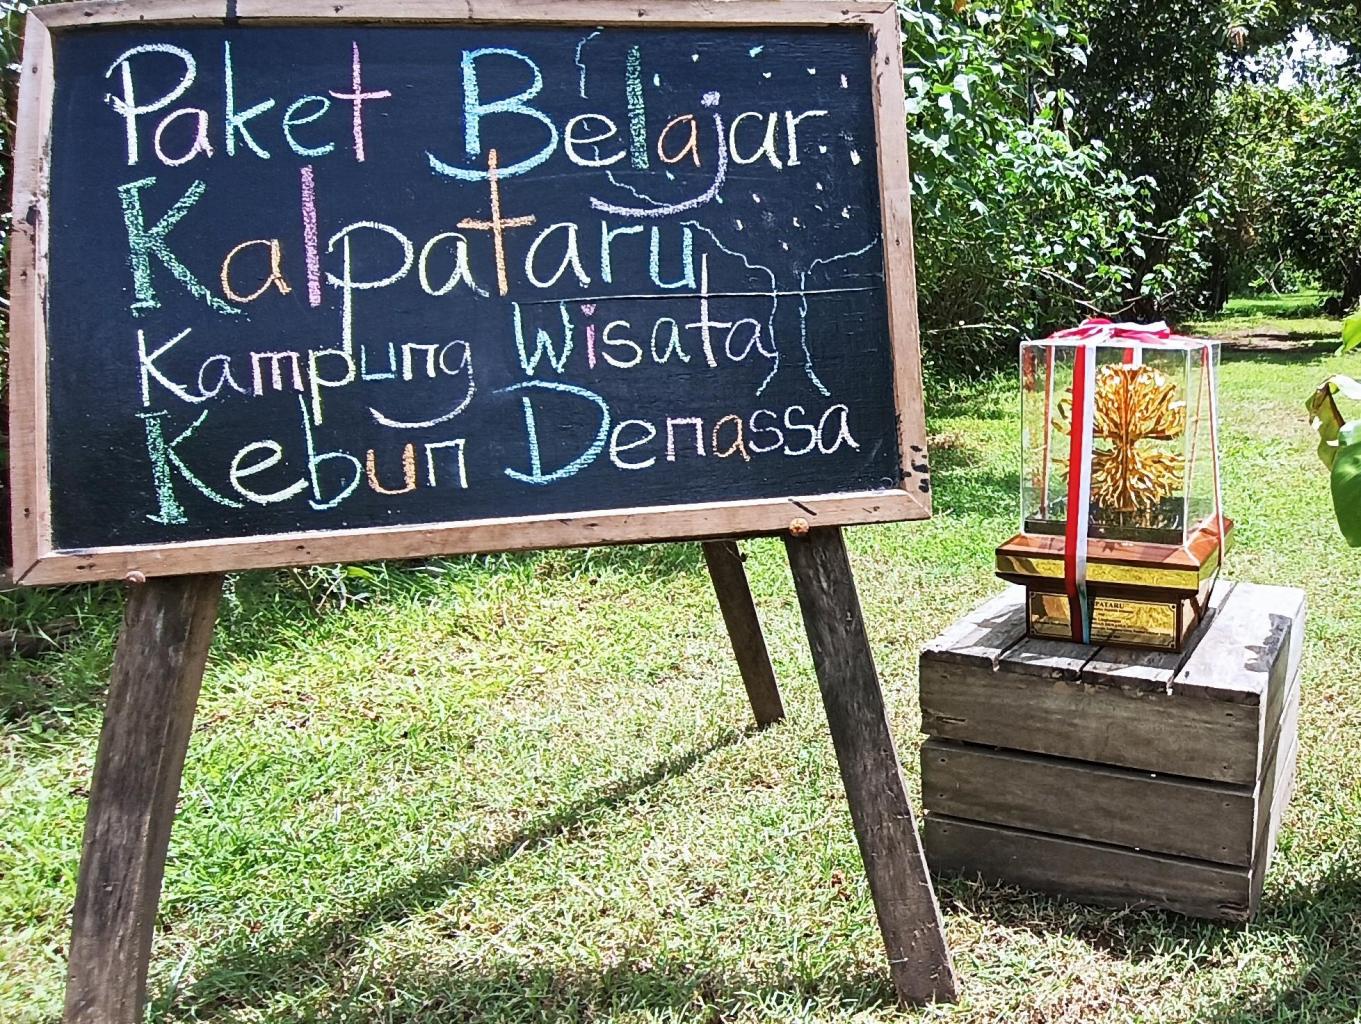 Paket Belajar
Kalpataru
Kampung Wisata
Kebun Denassa
KALPATARU